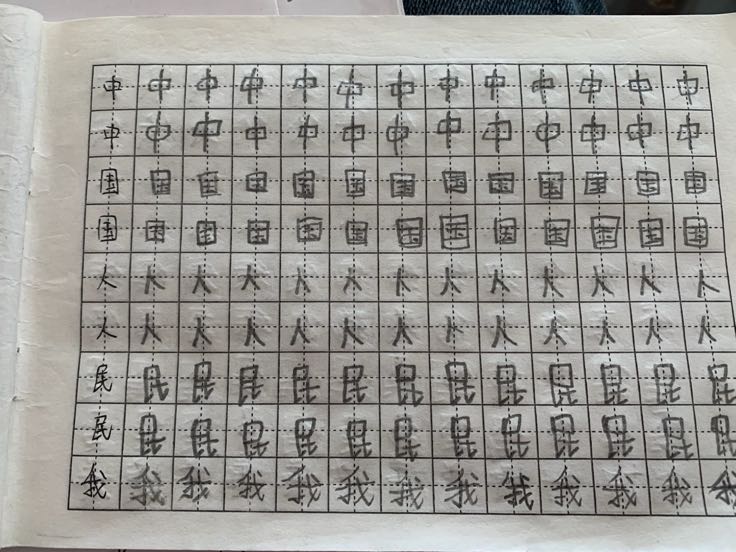 中中中中中中中中中中中中中
中中中中中中中中中中中中中
国国国国国国国国国国国国国
国国国国国国国国国国国国国
人人人人人人人人人人人人人
人人人人人人人人人人人人人
民民民民民民民民民民民民民
民民民民民民民民民民民民民
我我我我我我我我我我我我我